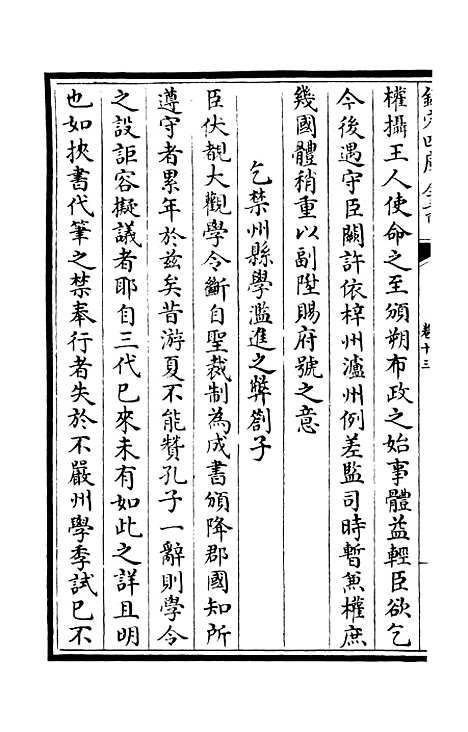 欽定四庫全書
卷十三
權攝王人使命之至頒朔布政之始事體益輕臣欲乞
今後遇守臣闕許依梓州瀘州例差監司時暫兼權庶
幾國體稍重以副陞賜府號之意
乞禁州縣學濫進之弊劄子
臣伏覩大觀學令斷自聖裁制為成書頒降郡國知所
遵守者累年於兹矣昔游夏不能贊孔子一辭則學令
之設詎容擬議者耶自三代已來未有如此之詳且明
也如挾書代筆之禁奉行者失於不嚴州學季試已不